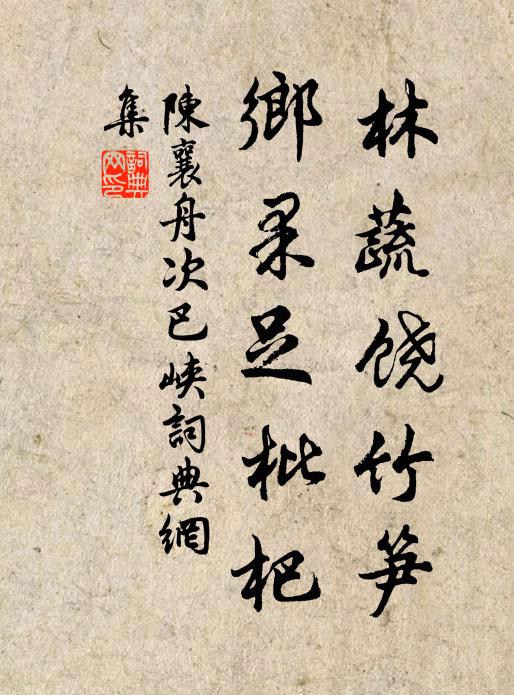 林蔬饶竹笋
鄉果足枇杷
陳襄舟次巴峽詞典網
集
詞典網印